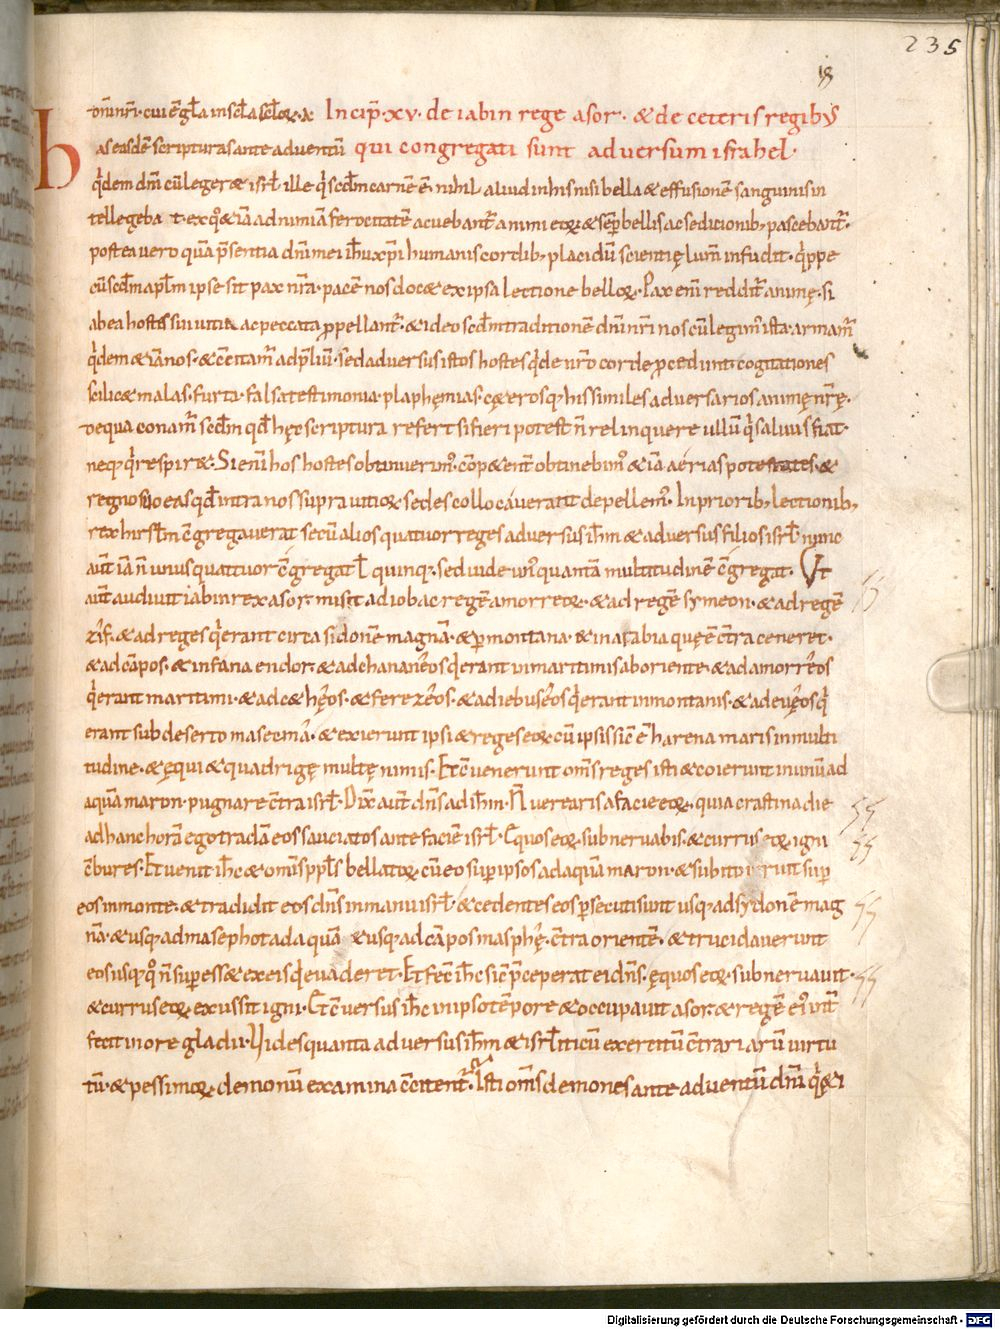 235
dn̄i nr̄i · cui ē gl̄a in scl̄a scl̄oꝝ · a · Incip̄ · xv · de iabin rege asor · & de ceteris regibꝰ
Has easdē scripturas ante adventū qui congregati sunt adversum israhel ·
q̇dem dn̄i cū leger& isrl̄ ille q̇ scd̄m carnē ē · nihil aliud in his nisi bella & effusionē sanguinis in
tellegeba t · ex quo & iā ad nimiā ferocitatē acuebant᷑ animi eoꝝ & semp̄ bellis ac sedicionib; pascebant᷑ ·
postea vero quā p̄sentia dn̄i mei ih̄u xp̄i humanis cordib; placidū scientię lum̄ infudit · q̇ppe
cū scd̄m apl̄m ipse sit pax nr̄a · pacē nos doc& ex ipsa lectione belloꝝ · Pax eni̅ reddit᷑ animę · si
ab ea hostes sui uitia ac peccata ꝓpellant᷑ · & ideo scd̄m traditionē dn̄i nr̄i nos cū legimꝰ ista · armam᷑
q̇dem & iā nos · & c̄citam᷑ ad p̄liū · sed adversus istos hostes q̇ de nr̄o corde ꝓcedunt · cogitationes
scilic& malas · furta · falsa testimonia · plaphęmias · cęterosq; his similes adversarios animę nr̄ę ·
& equa conam᷑ scd̄m qd̄ hęc scriptura refert si fieri potest n̄ relinquere ullū q̇ salvus fiat ·
neq; q̇ respir& · Si eni̅ hos hostes obtinuerimꝰ · c̄p&ent᷑ obtinebimꝰ & iā aerias potestates · &
regno suo eas qd̄ intra nos supra uitioꝝ sedes collocaverant depellemꝰ · In priorib; lectionib;
rex hirsl̄m c̄gregaverat secū alios quatuor reges adversus ih̄m & adversus filios isrl̄ nunc
aut̄ iā n̄ unus quattuor c̄gregat l̄ quinq; · sed vide unꝰ quantā multitudinē c̄gregat · Ut
aut̄ audiuit iabin rex asor · misit ad iobac regē amorreoꝝ · & ad regē symeon · & ad regē
zif · & ad reges q̇ erant circa sidonē magnā · & p̄ montana · & in arabia quę ē c̄tra ceneret ·
& ad cāpos · & in fana endor · & ad chananeos q̇ erant in maritimis ab oriente · & ad amorreos
q̇ erant maritimi · & ad c&hęos · & ferezeos · & ad iebuseos q̇ erant in montanis · & ad eveos q̇
erant sub deserto masecmā · & exierunt ipsi & reges eoꝝ cū ipsis sic ē harena maris in multi
tudine · & ęqui & quadrigę multę nimis · Et c̄venerunt om̄s reges isti & coierunt in unū ad
aquā maron · pugnare c̄tra isrl̄ · Dix̄ aut̄ dn̄s ad ih̄m · N̄ verearis a facie eoꝝ · quia crastina die
ad hanc horā ego tradā eos sauciatos ante faciē isrl̄ · Equos eoꝝ · subnervabis · & currus eoꝝ · igni
c̄bures · Et venit ih̄c & om̄s ppl̄s bellatoꝝ cū eo sup̄ ipsos ad aquā maron · & subito irruit sup̄
eos in monte · & tradidit eos dn̄s in manu isrl̄ · & cedentes eos p̄secuti sunt usq; ad sydonē mag
nā · & usq; ad masephot ad aquā & usq; ad cāpos masphe · c̄tra orientē · & trucidaverunt
eos usq; quo n̄ sup̄ess& ex eis q̇ evaderet · Et fec̄ ih̄c sic p̄ceperat ei dn̄s · ęquos eoꝝ · subnervavit ·
& currus eoꝝ exussit igni · Et c̄versus ih̄c in ipso tēpore & occupavit asor · & regē eiꝰ int̄
fecit in ore gladii · Vides quanta adversus ih̄m & isrl̄iticū exercitū c̄trariarū uirtu
tū · & pessimoꝝ demonū examina c̄citent᷑ · Isti om̄s demones ante adventū dn̄i q̇&i
Digitalisierung gefördert durch die Deutsche Forschungsgemeinschaft - DFG